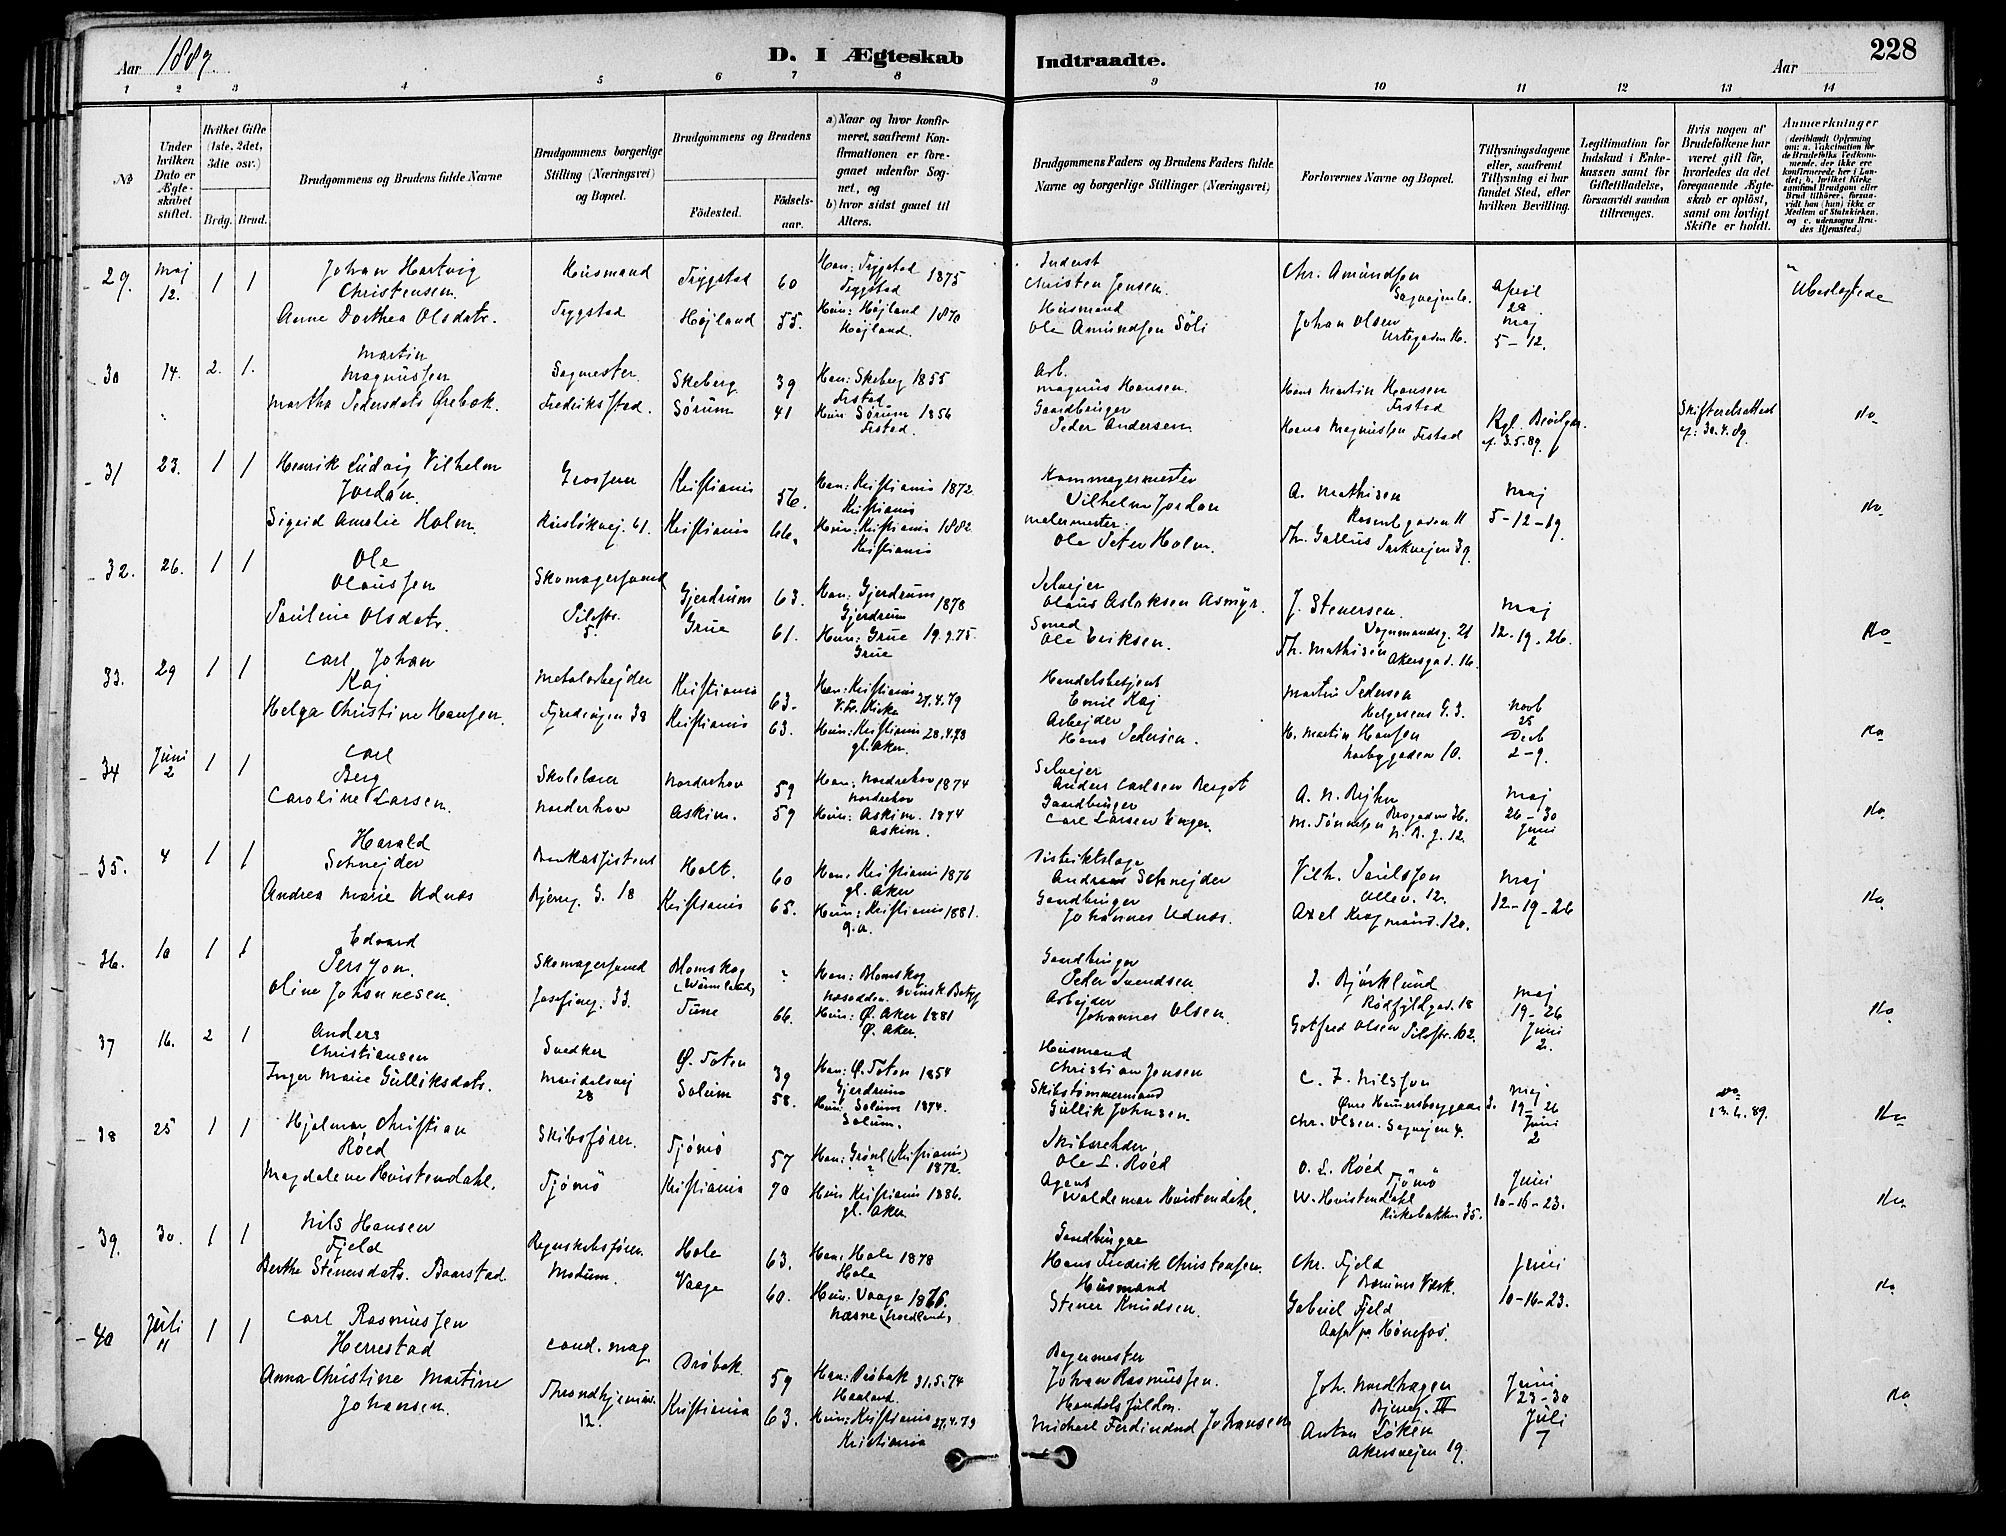 Aar 1889.
D. I Ægteskab Indtraadte.
Aar
228
1 2 3 4 5 6 7 8 9 10 11 12 13 14
No
Under hvilken Dato er Ægteskabet stiftet.
Hvilket Gifte (1ste, 2det, 3die osv.)
Brdg. Brud.
Brudgommens og Brudens fulde Navne
Brudgommens borgerlige Stilling (Næringsvei) og Bopæl.
Brudgommens og Brudens
Fødested. Fødselsaar.
a) Naar og hvor konfirmeret, saafremt Konfirmationen er foregaaet udenfor Sognet, og
b) hvor sidst gaaet til Alters.
Brudgommens Faders og Brudens Faders fulde Navne og borgerlige Stillinger (Næringsvei)
Forlovernes Navne og Bopæl.
Tillysningsdagene eller, saafremt Tillysning ei har fundet Sted, efter hvilken Bevilling.
Legitimation for Indskud i Enkekassen samt for Giftetilladelse, forsaavidt saadan tiltrænges.
Hvis nogen af Brudefolkene har været gift før, hvorledes da det foregaaende Ægteskab er opløst, samt om lovligt Skifte er holdt.
Anmærkninger
29. Maj 12. 1 1
Johan Hartvig Christensen.
Anne Dorthea Olsdatr.
Husmand
Trygstad
Trygstad 60
Højland 55.
Han: Trygstad 1875
Trygstad
Hun: Højland 1870
Højland.
Inderst
Christen Jensen.
Husmand
Ole Amundsen Søli
Chr. Amundsen
Johan Olsen
Urtegaden 16.
April 28
Maj 5-12.
Ubeslægtede
30 14. 2. 1.
Martin Magnussen
Martha Pedersdatr Ørebæk.
Sagmester.
Fredriksstad.
Skeberg 39
Sørum 41
Han: Skeberg 1855
Frstad.
Hun Sørum 1856
Frstad.
Arb.
Magnus Hansen.
Gaardbruger
Peder Andersen.
Hans Martin Hansen
Frstad
Hans Magnussen Frstad
Kgl. Bevilgn.
af 3.5.89.
Skifteretsattest
af: 30.4.89.
do
31 23. 1 1
Henrik Ludvig Vilhelm Jordan.
Sigrid Amalie Holm.
Grosserer
Ruseløkvej. 61.
Kristiania 56.
Kristiania 66.
Han: Kristiania 1872
Kristiania
Hun: Kristiania 1882
Kristiania
Kammagermester
Vilhelm Jordan
Malermester.
Ole Peter Holm.
A. Mathisen
Rosenkgaden 11
Th. Gallus Parkvejen 39.
Maj
5-12-19.
do
32. 26. 1 1
Ole Olaussen
Pauline Olsdatr.
Skomagersvend
Pilestr. 5.
Gjerdrum 63.
Grue 61.
Han: Gjerdrum 1878
Gjerdrum
Hun: Grue 19.9.75.
Grue
Selvejer
Olaus Aslaksen Asmyr.
Smed
Ole Eriksen.
J. Stenersen.
Vognmandsg. 21
Th. Mathisen Akersgad. 16.
Maj
12-19-26.
do
33. 29 1 1
Carl Johan Kaj
Helga Christine Hansen.
Metalarbejder
Kristiania 63.
Kristiania 63.
Han: Kristiania 27.4.79
V. Fr. Kirke
Hun: Kristiania 28.4.78
gl. Aker.
Handelsbetjent
Emil Kaj
Arbejder
Hans Pedersen.
Martin Pedersen
Helgesens G. 3.
H. Martin Hansen
Norbygaden 10.
Novb 25
Decb 2-9.
do
34 Juni 2 1 1
Carl Berg
Caroline Larsen.
Skolelærer
Norderhov
Nordrehov 59
Askim. 59
Han: Nordrehov 1874
Nordrehov
Hun: Askim. 1874
Askim.
Selvejer
Anders Carlsen Berget
Gaardbruger
Carl Larsen Enger.
M. Tønnesen
Maj 26-30
Juni 2
do
35. 4 1 1
Harald Schnejder
Andrea Marie Udnæs
Bankassistent
Bjerreg. G. 18
Holt. 60
Kristiania 65.
Han: Kristiania 1876
gl. Aker
Hun: Kristiania 1881.
g.a.
Distriktslæge
Andreas Schnejder
Gaardbruger
Johannes Udnæs.
Vilh. Poulsson
Ullev. 12.
Axel Krag 120.
Maj
12-19-26
do
36. 10 1 1
Edvard Persson.
Oline Johannesen.
Skomagersvend
Josefineg. 33.
Blomskog (Wärmland)
Tune 66.
Han: Blomskog
Næsodden. Svensk Betyg
Hun: Ø. Aker 1881
Ø. Aker.
Gaardbruger
Peder Svendsen
Arbejder
Johannes Olsen.
J. Bjørklund
Rødfyldgad. 18
Gotfred Olsen Pilestr. 102.
Maj 19-26
Juni 2.
do
37 16. 2 1
Anders Christiansen
Inger Marie Gulliksdatr.
Snedker
Maridalsvej 28
Ø. Toten 39
Solum 58.
Han: Ø. Toten 1854
Gjerdrum
Hun: Solum 1874.
Solum.
Husmand
Christian Jensen
Skibstømmermand
Gullik Johnsen.
C. J. Nilsson
Chr. Olsen. Sagvejen 4.
Maj 19-26
Juni 2
13.4.89.
do
38 25 1 1
Hjalmar Christian Røed
Magdalene Hvistendahl.
Skibsfører.
Tjømø
Tjømø 57
Kristiania 70
Han: Grønl. (Kristiania) 1872.
Hun Kristiania 1886.
gl. Aker
Skibsreder
Ole L. Røed
Agent
Waldemar Hvistendahl.
O. L. Røed
Tjømø
W. Hvistendahl
Kirkebakken 35.
Juni
10-16-23.
do
39. 30. 1 1
Nils Hansen Fjeld
Berthe Stenersdatr. Baarstad.
Regnskabsfører.
Modum.
Hole 63.
Vaage 60.
Han: Hole 1878
Hole
Hun: Vaage 1876.
Næsne (Nordland)
Gaardbruger
Hans Fredrik Christensen.
Husmand
Stener Knudsen.
Chr. Fjeld
Bærums Værk.
Gabriel Fjeld
Juni
10-16-23.
do
40 Juli 11 1 1
Carl Rasmussen Herrestad
Anna Christine Martine Johansen.
cand. mag.
12.
Drøbak 59
Kristiania 63.
Han: Drøbak 31.5.74
Hun: Kristiania 27.4.79
Kristiania
Bagermester
Johan Rasmussen.
Handelsfuldm.
Michael Ferdinand Johansen
Joh. Nordhagen
Anton Løken
Akersvejen 19.
Juni 23-30
Juli 7
do